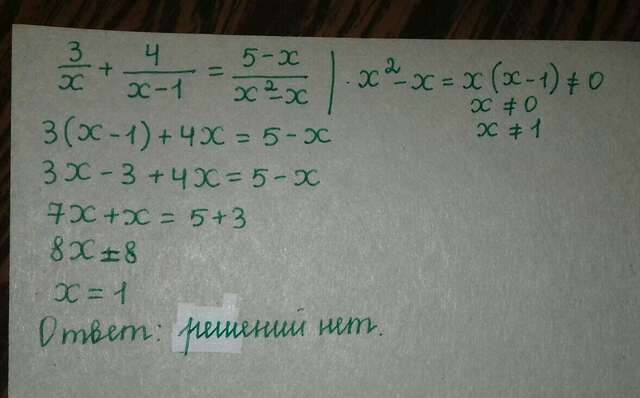 3/x + 4/(x-1) = (5-x)/(x²-x) | · x²-x = x(x-1) ≠ 0
x ≠ 0
3(x-1)+4x = 5-x
x ≠ 1
3x-3+4x = 5-x
7x+x = 5+3
8x = 8
x = 1
Ответ: решений нет.